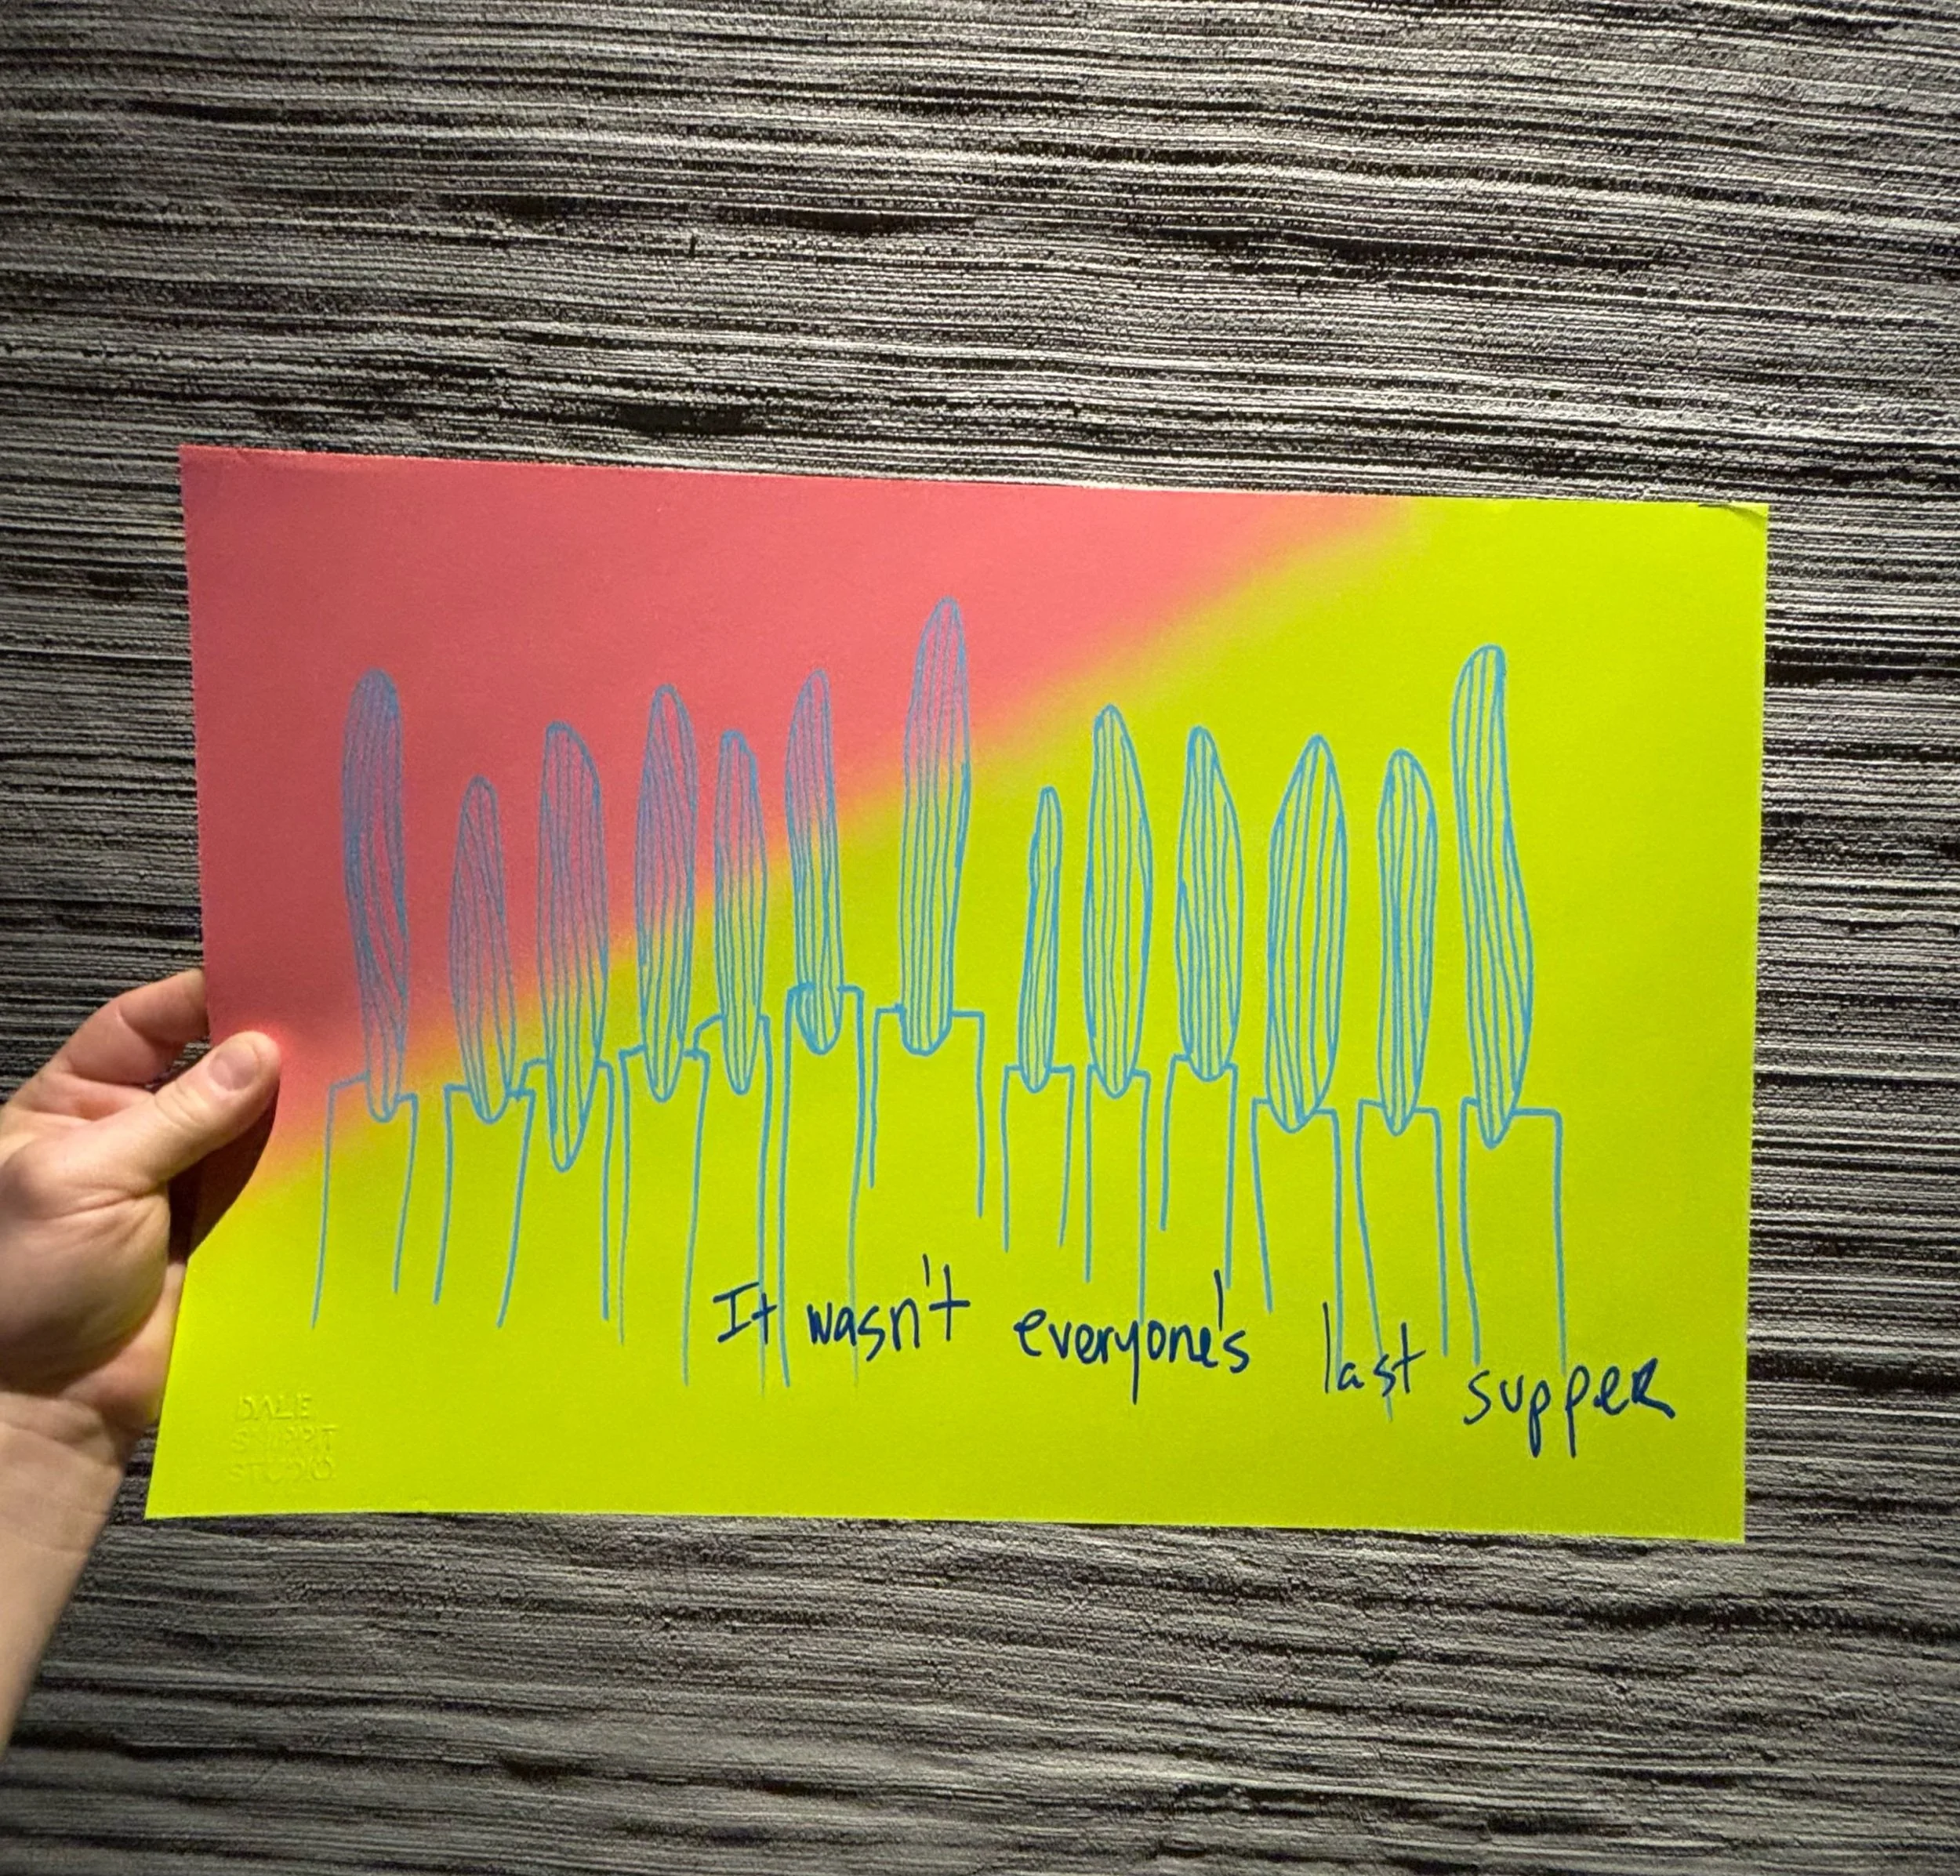 It wasn't everyone's last supper
DALE
STUDIO